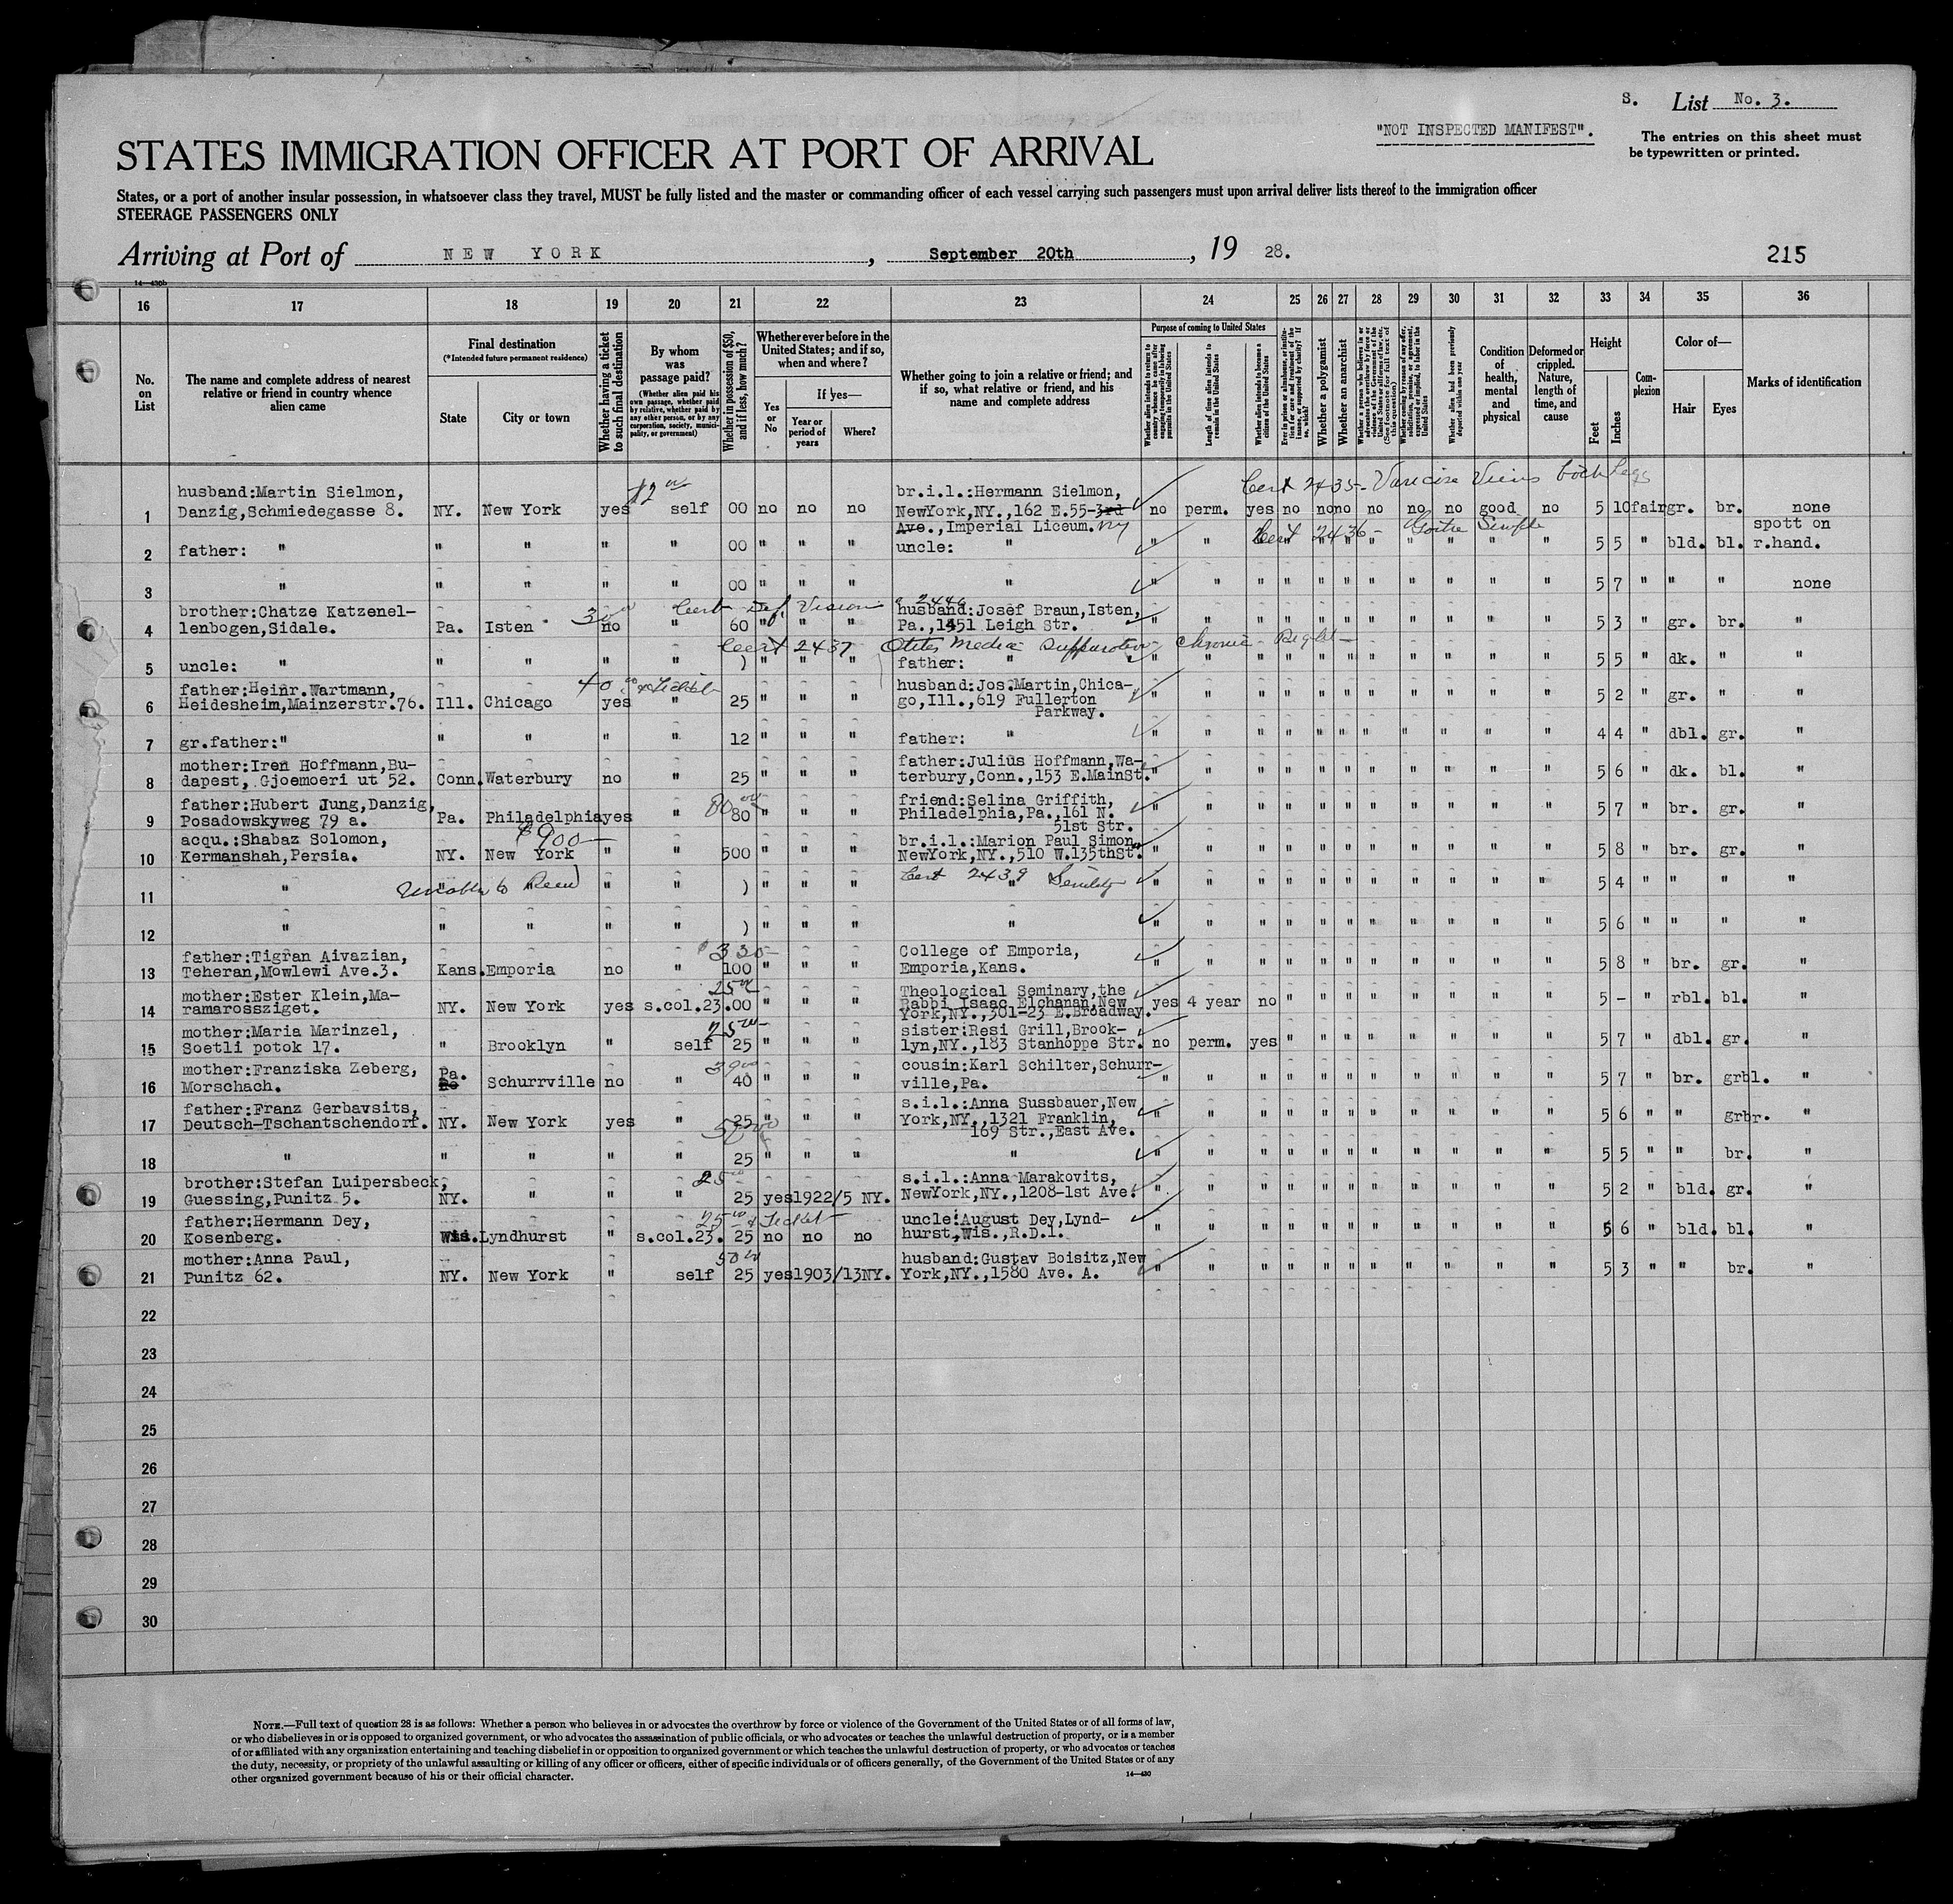 S. List No. 3.
"NOT INSPECTED MANIFEST".
The entries on this sheet must
be typewritten or printed.
STATES IMMIGRATION OFFICER AT PORT OF ARRIVAL
States, or a port of another insular possession, in whatsoever class they travel, MUST be fully listed and the master or commanding officer of each vessel carrying such passengers must upon arrival deliver lists thereof to the immigration officer
STEERAGE PASSENGERS ONLY
Arriving at Port of NEW YORK, September 20th, 19 28.
215
14—430b
16 17 18 19 20 21 22 23 24 25 26 27 28 29 30 31 32 33 34 35 36
No. on List
The name and complete address of nearest relative or friend in country whence alien came
Final destination
(*Intended future permanent residence)
State
City or town
Whether having a ticket to such final destination
By whom was passage paid?
(Whether alien paid his own passage, whether paid by relative, whether paid by any other person, or by any corporation, society, municipality, or government)
Whether in possession of $50, and if less, how much?
Whether ever before in the United States; and if so, when and where?
Yes or No
If yes—
Year or period of years
Where?
Whether going to join a relative or friend; and if so, what relative or friend, and his name and complete address
Purpose of coming to United States
Length of time alien intends to remain in the United States
Whether alien intends to become a citizen of the United States
Whether a polygamist
Whether an anarchist
Whether alien had been previously deported within one year
Condition of health, mental and physical
Deformed or crippled. Nature, length of time, and cause
Height
Feet
Inches
Complexion
Color of—
Hair
Eyes
Marks of identification
Cert 2435- Varicose Veins both legs
husband:Martin Sielmon, br.i.l.:Hermann Sielmon,
1 Danzig,Schmiedegasse 8. NY. New York yes self 00 no no no NewYork,NY.,162 E.55-3rd no perm. yes no no no no no no good no 5 10 fair gr. br. none
Ave.,Imperial Liceum. NY Cert 2436- Goitre Simple spott on
2 father: " " " " " 00 " " " uncle: " " " " " " " " " " " " 5 5 " bld. bl. r.hand.
3 " " " " " 00 " " " " " " " " " " " " " " " 5 7 " " " none
brother:Chatze Katzenel- Cert Def. Vision 2446 husband:Josef Braun,Isten,
4 lenbogen,Sidale. Pa. Isten no " 60 " " " Pa.,1451 Leigh Str. " " " " " " " " " " " 5 3 " gr. br. "
Cert 2437 Otitis Media Suppurative Chronic Right—
5 uncle: " " " " " ) " " " father: " " " " " " " " " " " " 5 5 " dk. " "
father:Heinr.Wartmann, 40.00 & Ticket husband:Jos.Martin,Chica-
6 Heidesheim,Mainzerstr.76. Ill. Chicago yes " 25 " " " go,Ill.,619 Fullerton " " " " " " " " " " " 5 2 " gr. " "
Parkway.
7 gr.father:" " " " " 12 " " " father: " " " " " " " " " " " " 4 4 " dbl. gr. "
mother:Iren Hoffmann,Bu- father:Julius Hoffmann,Wa-
8 dapest, Gjoemoeri ut 52. Conn. Waterbury no " 25 " " " terbury,Conn.,153 E.MainSt. " " " " " " " " " " " 5 6 " dk. bl. "
father:Hubert Jung,Danzig, 80.00 friend:Selina Griffith,
9 Posadowskyweg 79 a. Pa. Philadelphia yes " 80 " " " Philadelphia,Pa.,161 N. " " " " " " " " " " " 5 7 " br. gr. "
51st Str.
acqu.:Shabaz Solomon, $900— br.i.l.:Marion Paul Simon,
10 Kermanshah,Persia. NY. New York " " 500 " " " NewYork,NY.,510 W.135thSt. " " " " " " " " " " " 5 8 " br. gr. "
Unable to Read Cert 2439 Senility
11 " " " " " ) " " " " " " " " " " " " " " " 5 4 " " " "
12 " " " " " ) " " " " " " " " " " " " " " " 5 6 " " " "
father:Tigran Aivazian, $330— College of Emporia,
13 Teheran,Mowlewi Ave.3. Kans. Emporia no " 100 " " " Emporia,Kans. " " " " " " " " " " " 5 8 " br. gr. "
mother:Ester Klein,Ma- 25.00 Theological Seminary,the
14 ramarossziget. NY. New York yes s.col.23. 00 " " " Rabbi Isaac Elchanan,New yes 4 year no " " " " " " " " 5 - " rbl. bl. "
York,NY.,301-23 E.Broadway.
mother:Maria Marinzel, 25.00 sister:Resi Grill,Brook-
15 Soetli potok 17. " Brooklyn " self 25 " " " lyn,NY.,183 Stanhoppe Str. no perm. yes " " " " " " " " 5 7 " dbl. gr. "
mother:Franziska Zeberg, Pa. 39.00 cousin:Karl Schilter,Schurr-
16 Morschach. Schurrville no " 40 " " " ville,Pa. " " " " " " " " " " " 5 7 " br. grbl. "
father:Franz Gerbavsits, s.i.l.:Anna Sussbauer,New
17 Deutsch-Tschantschendorf. NY. New York yes " 25 " " " York,NY.,1321 Franklin, " " " " " " " " " " " 5 6 " " grbr. "
50.00 169 Str.,East Ave.
18 " " " " " 25 " " " " " " " " " " " " " " " 5 5 " " br. "
brother:Stefan Luipersbeck, 25.00 s.i.l.:Anna Marakovits,
19 Guessing,Punitz 5. NY. " " " 25 yes 1922/5 NY. NewYork,NY.,1208-1st Ave. " " " " " " " " " " " 5 2 " bld. gr. "
father:Hermann Dey, 25.00 & Ticket uncle:August Dey,Lynd-
20 Kosenberg. Wis. Lyndhurst " s.col.23. 25 no no no hurst,Wis.,R.D.1. " " " " " " " " " " " 5 6 " bld. bl. "
mother:Anna Paul, 50.00 husband:Gustav Boisitz,New
21 Punitz 62. NY. New York " self 25 yes 1903/13 NY. York,NY.,1580 Ave. A. " " " " " " " " " " " 5 3 " " br. "
22
23
24
25
26
27
28
29
30
NOTE.—Full text of question 28 is as follows: Whether a person who believes in or advocates the overthrow by force or violence of the Government of the United States or of all forms of law,
or who disbelieves in or is opposed to organized government, or who advocates the assassination of public officials, or who advocates or teaches the unlawful destruction of property, or is a member
of or affiliated with any organization entertaining and teaching disbelief in or opposition to organized government or which teaches the unlawful destruction of property, or who advocates or teaches
the duty, necessity, or propriety of the unlawful assaulting or killing of any officer or officers, either of specific individuals or of officers generally, of the Government of the United States or of any
other organized government because of his or their official character.
14—430